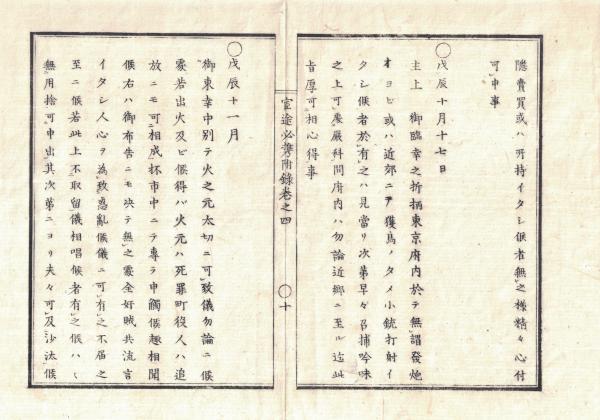 隱賣買或ハ所持イタシ候者無之樣精々心付
可申事
○戊辰十月十七日
主上 御臨幸之折柄東京府内於テ無謂發炮
オヨヒ或ハ近郊ニテ獲鳥ノタメ小銃打射イ
タシ候者於有之ハ見當リ次第早々召捕吟味
之上可處嚴科間府内ハ勿論近鄉ニ至ル迄此
旨厚可相心得事
官途必携附錄卷之四 ○十
○戊辰十一月
御東幸中別テ火之元太切ニ可致儀勿論ニ候
處若出火及ヒ候得ハ火元ハ死罪町役人ハ追
放ニモ可相成抔市中ニテ專ラ申觸候趣相聞
候右ハ御布告ニモ决テ無之處全奸賊共流言
イタシ人心ヲ為致惑亂候儀ニ可有之不届之
至ニ候若此上不取留儀相唱候者有之候ハヽ
無用捨可申出其次第ニヨリ夫々可及沙汰候